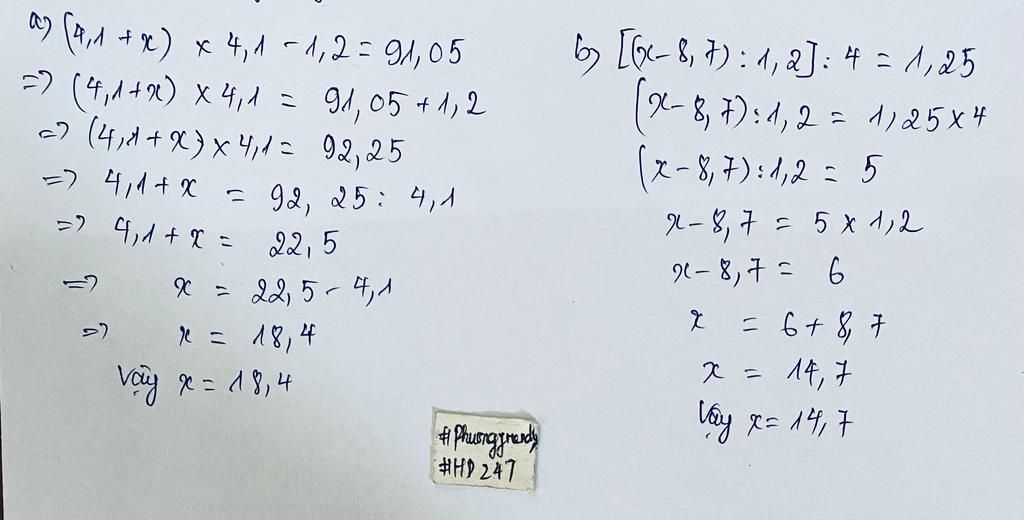 a) (4,1 + x) x 4,1 - 1,2 = 91,05
=> (4,1 + x) x 4,1 = 91,05 + 1,2
=> (4,1 + x) x 4,1 = 92,25
=> 4,1 + x = 92,25 : 4,1
=> 4,1 + x = 22,5
=> x = 22,5 - 4,1
=> x = 18,4
Vậy x = 18,4
b) [(x - 8,7) : 1,2] : 4 = 1,25
(x - 8,7) : 1,2 = 1,25 x 4
(x - 8,7) : 1,2 = 5
x - 8,7 = 5 x 1,2
x - 8,7 = 6
x = 6 + 8,7
x = 14,7
Vậy x = 14,7
#HD247